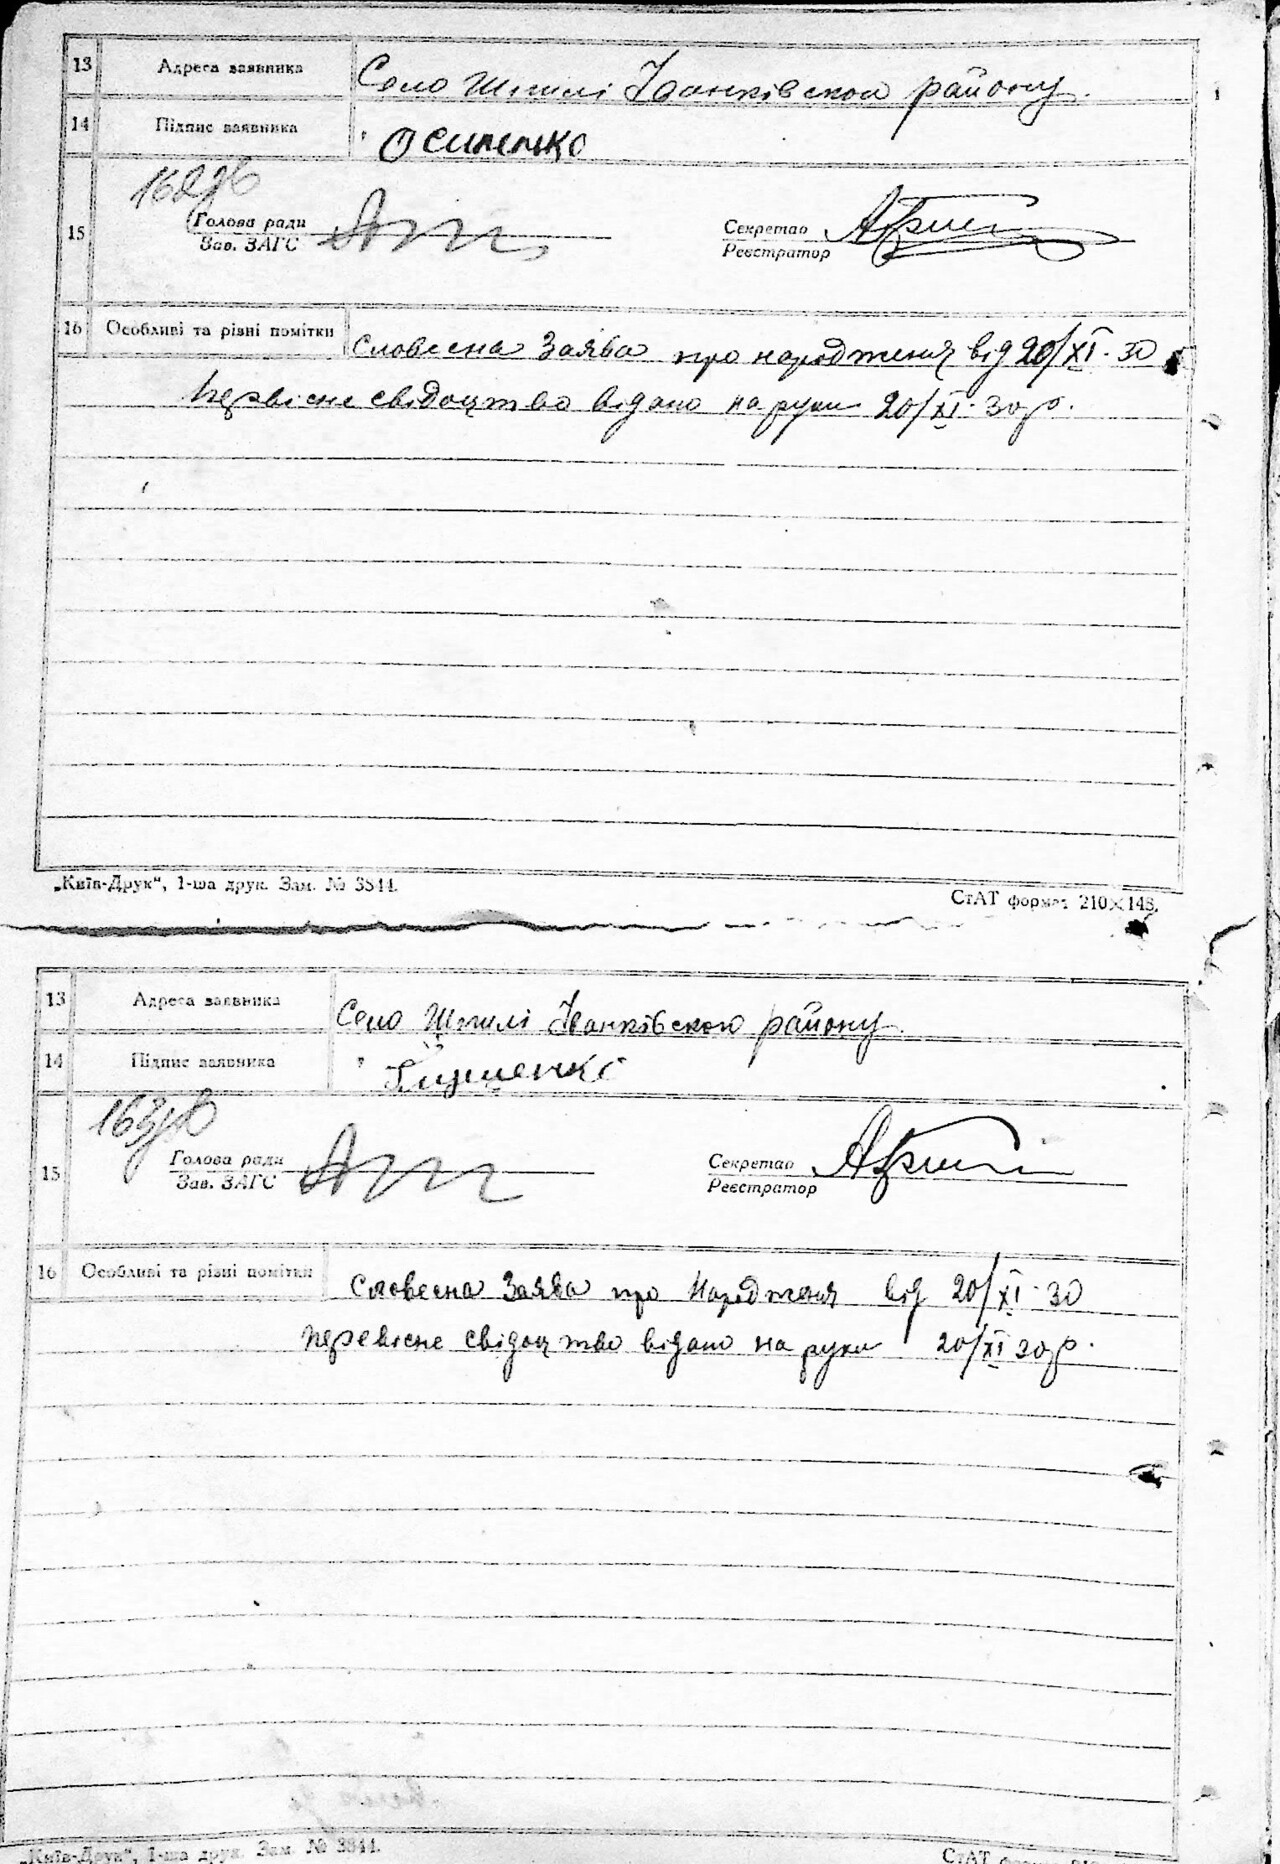 13 Адреса заявника Село Шпилі Іванківском району.
14 Підпис заявника Осипенко
162
Голова ради Секретар
15 Зав. ЗАГС Реєстратор
16 Особливі та різні помітки Словесна Заява про народження від 20/XI-30
Первісне свідоцтво відано на руки 20/XI-30 р.
„Київ-Друк“, 1-ша друк. Зам. № 3844. СтАТ формат 210×148.
13 Адреса заявника Село Шпилі Іванківского району
14 Підпис заявника
163
Голова ради Секретар
15 Зав. ЗАГС Реєстратор
16 Особливі та різні помітки Словесна Заява про народженя від 20/XI-30
Первісне свідоцтво відано на руки 20/XI 30 р.
„Київ-Друк“, 1-ша друк. Зам. № 3844. СтАТ